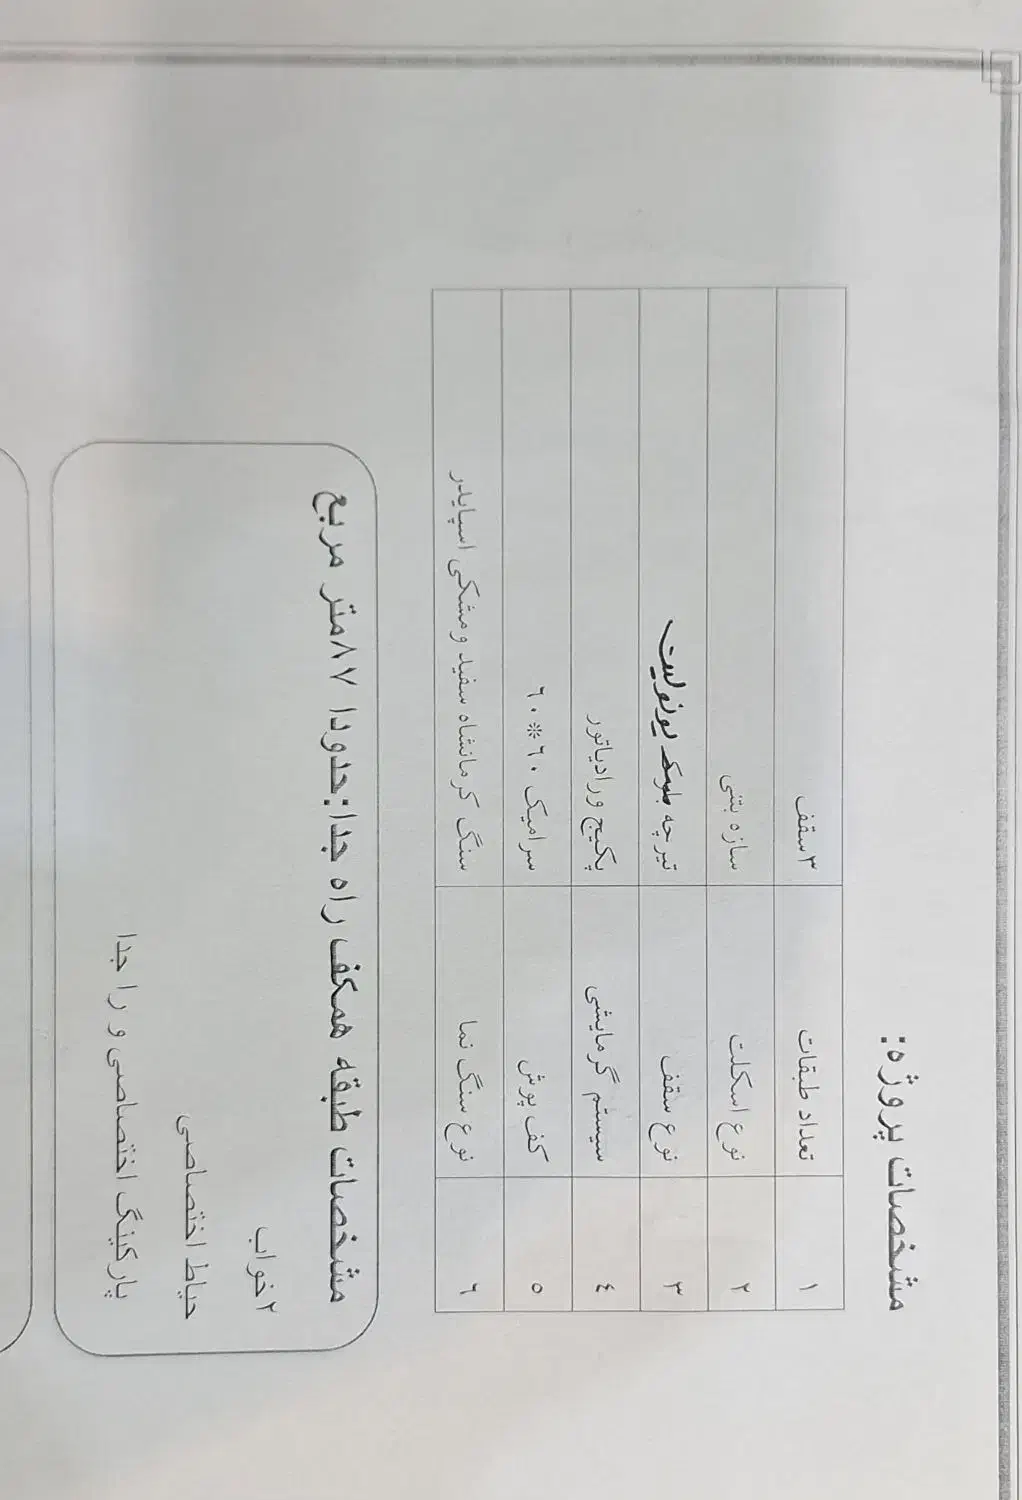 مشخصات پروژه:
۱ تعداد طبقات ۳سقف
۲ نوع اسکلت سازه بتنی
۳ نوع سقف تیرچه بلوک یونولیت
۴ سیستم گرمایشی پکیج ورادیاتور
۵ کف پوش سرامیک ۶۰*۶۰
۶ نوع سنگ نما سنگ کرمانشاه سفید ومشکی اسپایدر
مشخصات طبقه همکف راه جدا:حدودا ۸۷متر مربع
۲خواب
حیاط اختصاصی
پارکینگ اختصاصی و را جدا